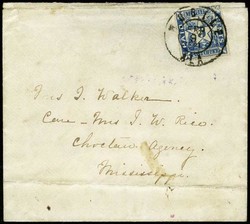 Mrs I. Walker.
Care Mrs I. W. Rice.
Choctaw Agency.
Mississippi.